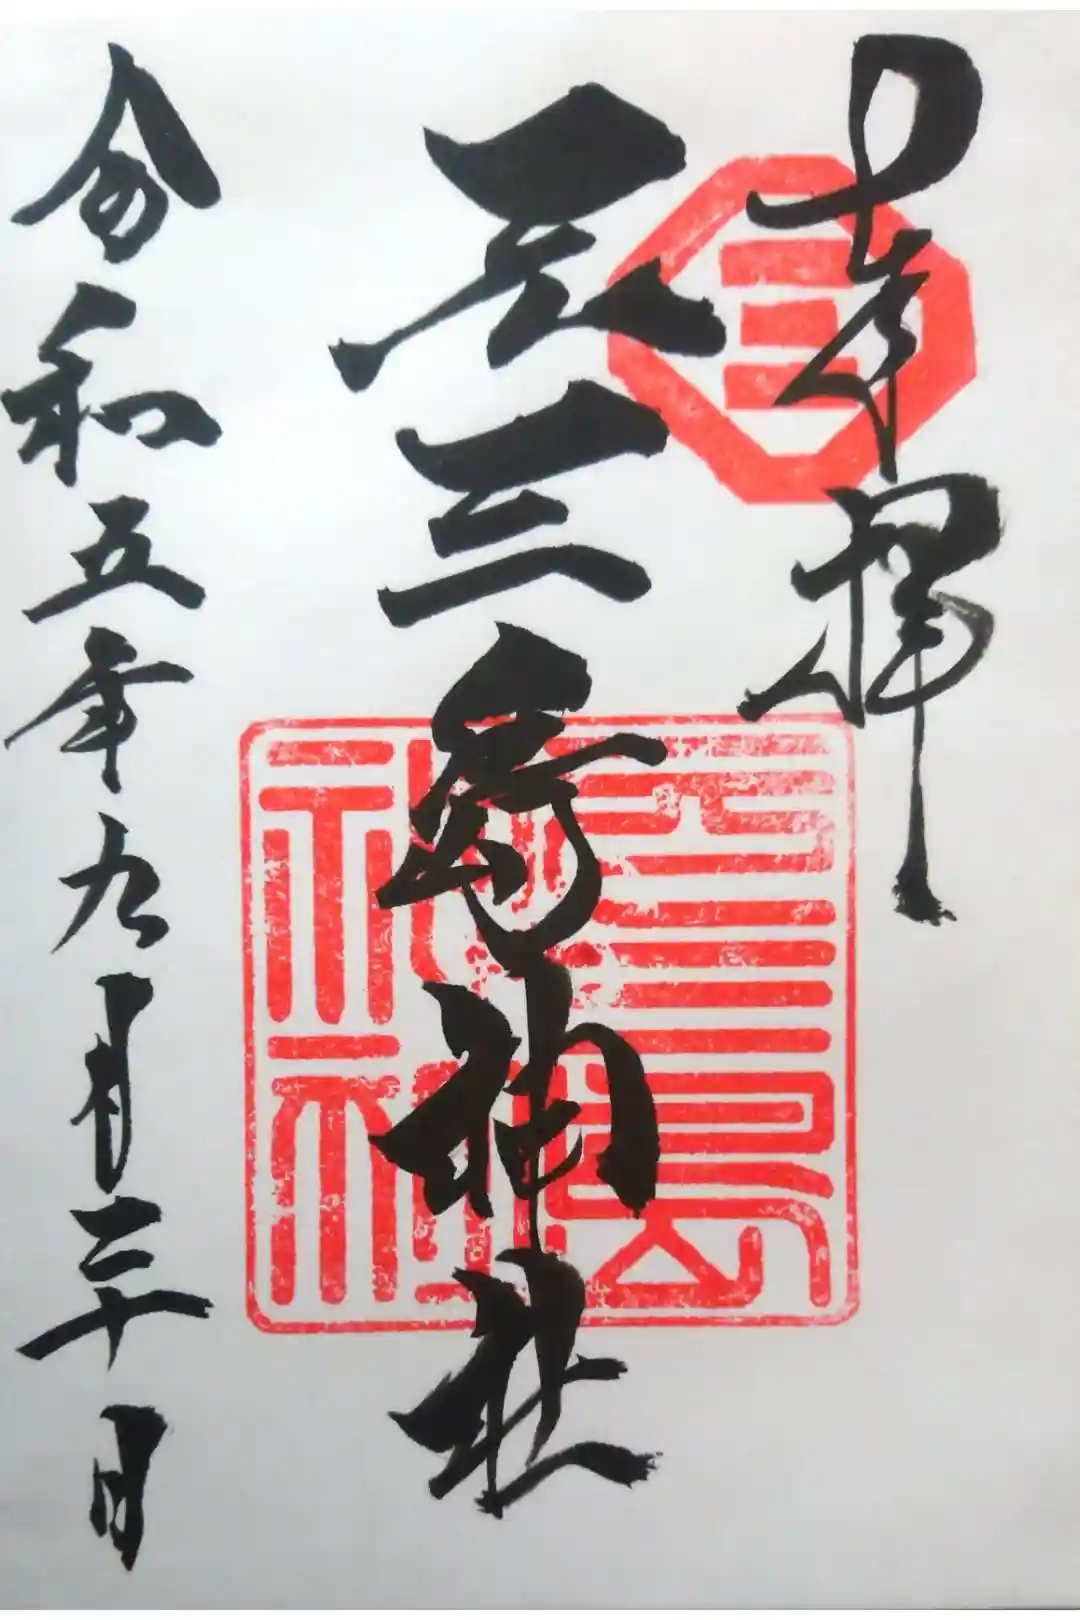 奉拝
元三島神社
令和五年九月二十日
元三島
神社
三